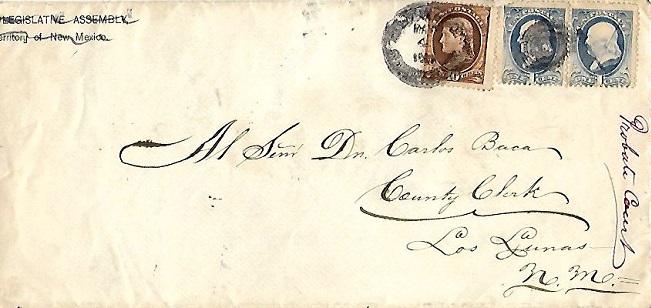 LEGISLATIVE ASSEMBLY,
Territory of New Mexico.
Al Señr Dn. Carlos Baca
County Clerk
Los Lunas
N. M.
Probate Court